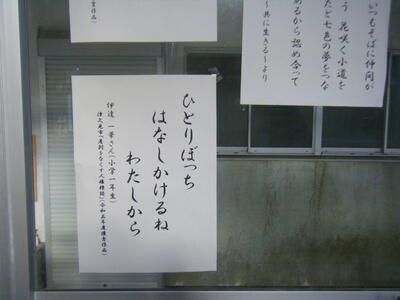 いつもそばに仲間が
う 花咲く小道を
たど七色の夢をつな
あるから認め合って
～共に生きる～より
ひとりぼっち
はなしかけるね
わたしから
伊達 一華さん(小学一年生)